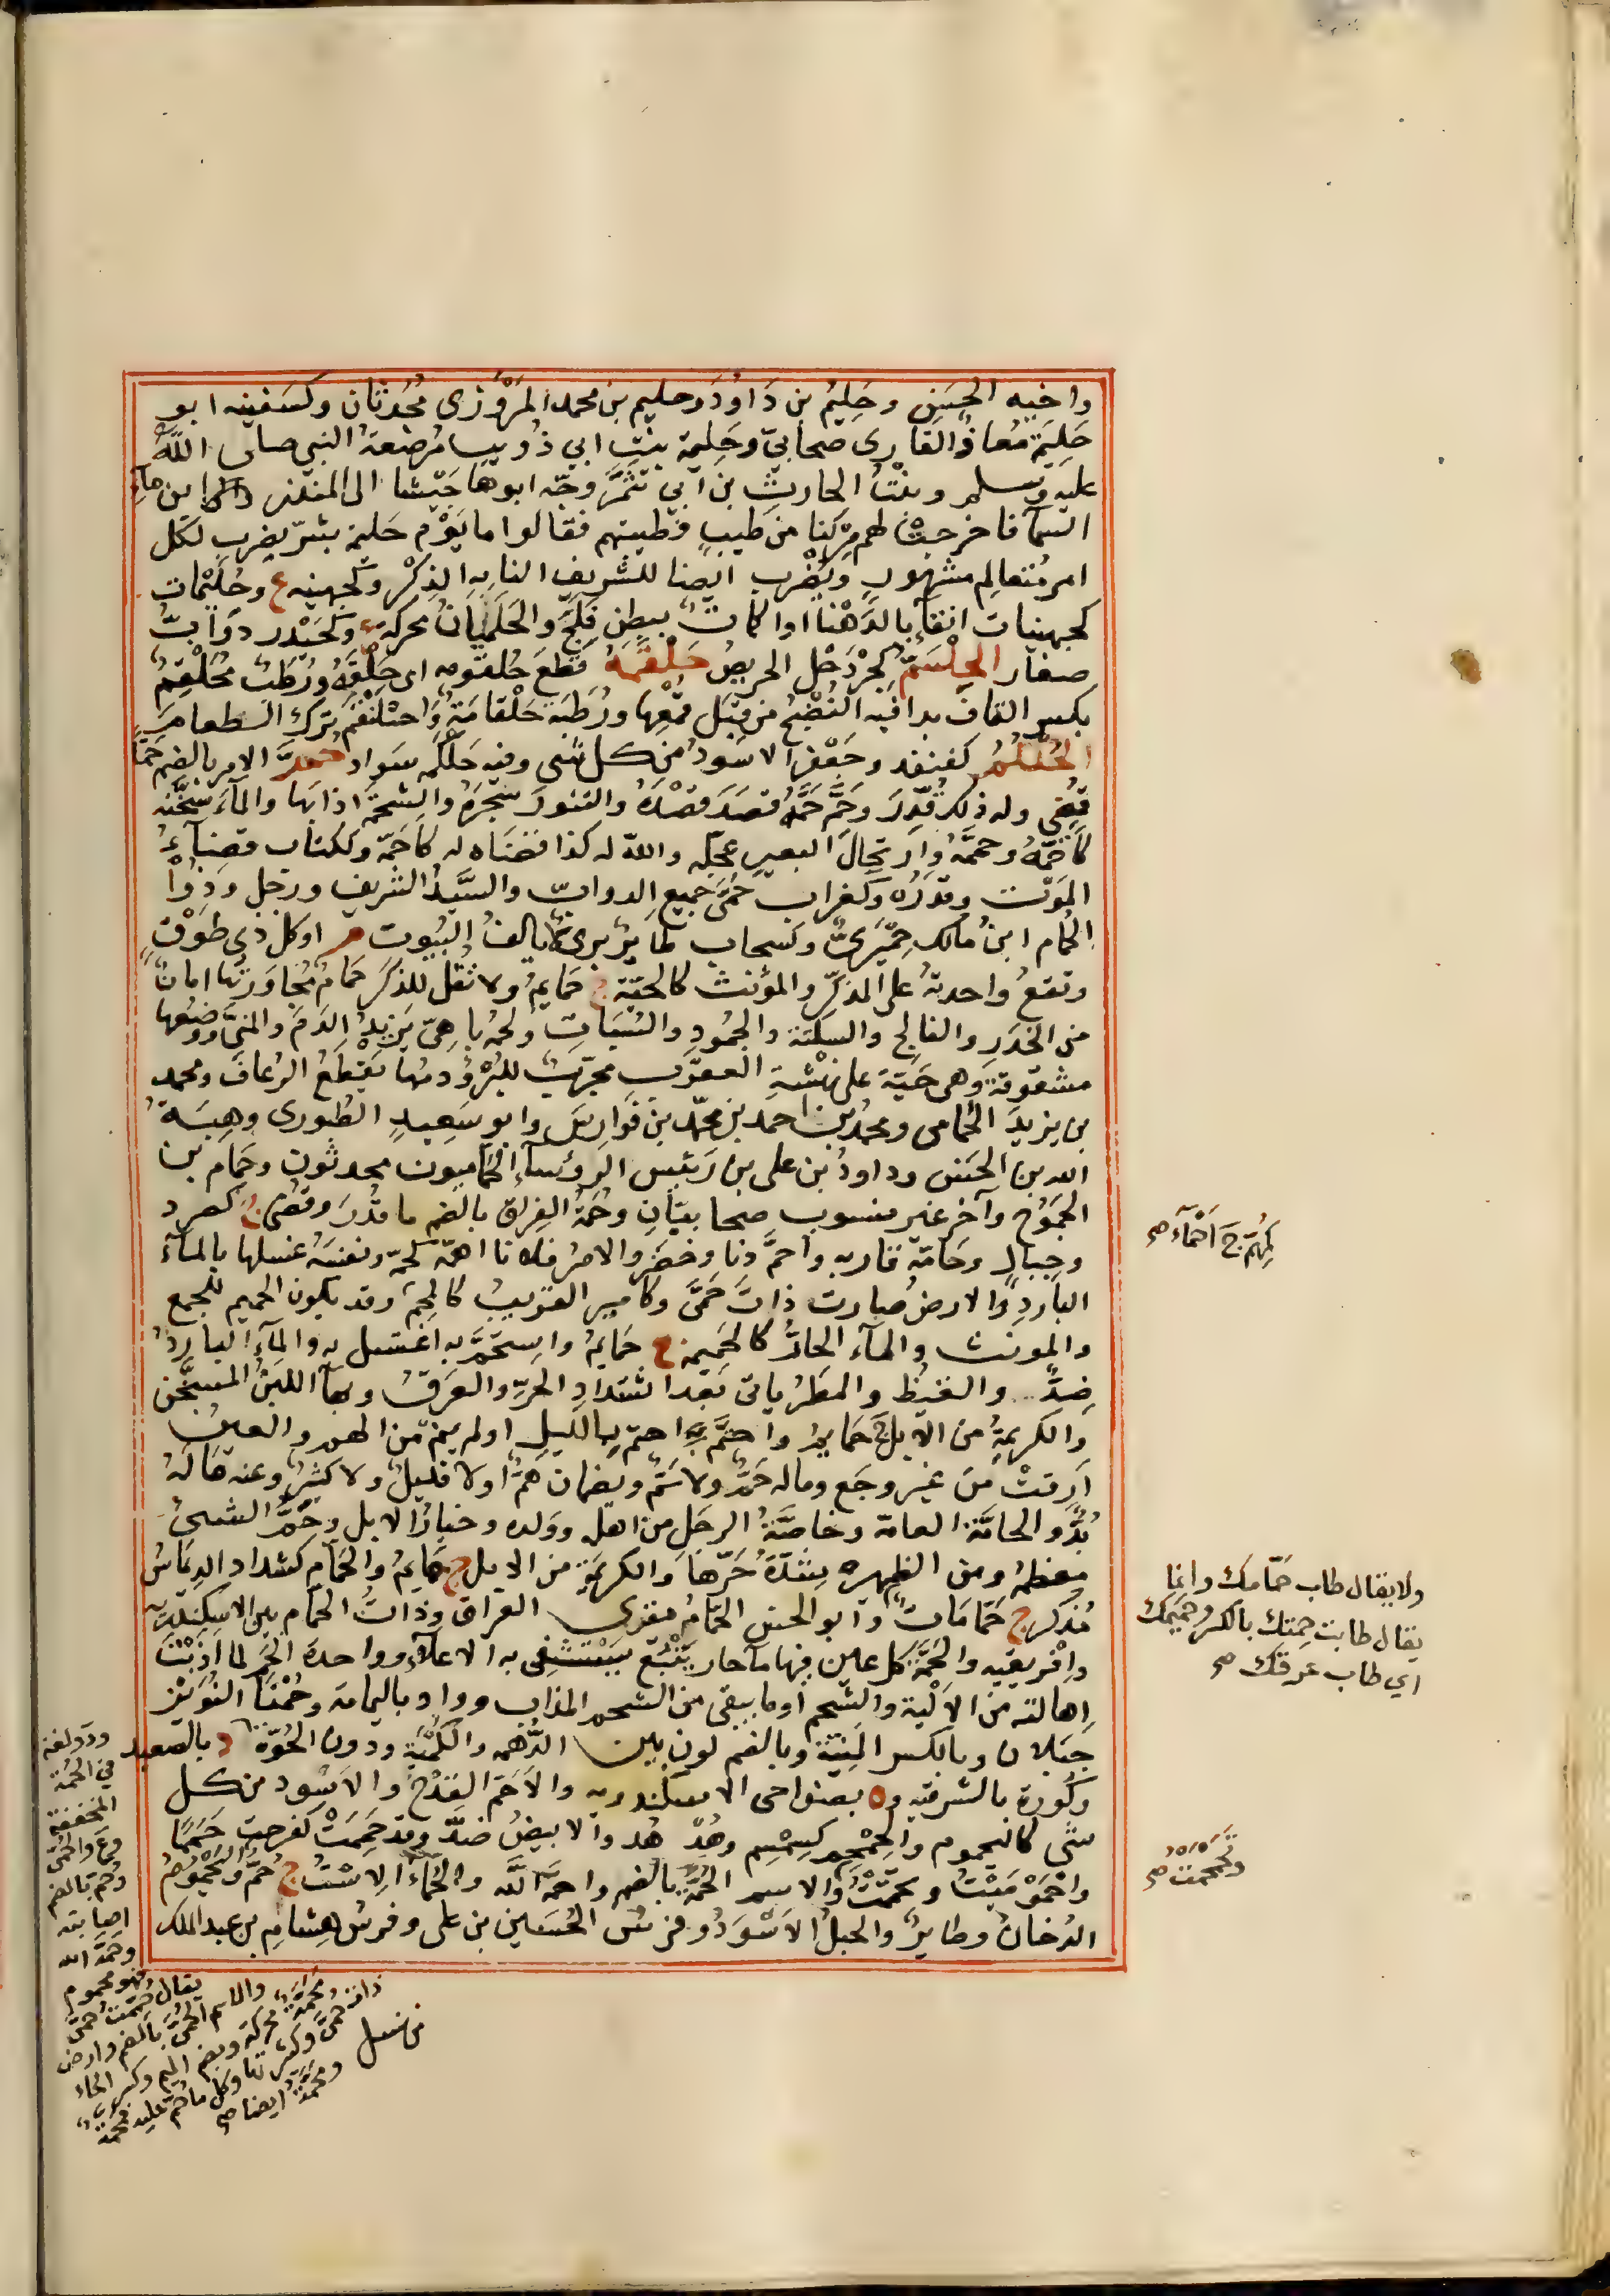 واخيه الحسن وحَلِيمُ بن دَاوُدَ وحليم بن محمد المَرْوَزى مُحَدثان وكسَفينه ابو
حَلِيمَةَ مُعاذٌ القارى صحابيّ وحَلِيمة بنتِ ابي ذُويب مُرضعةُ النبى صلى اللّه
عليه وسلم وبنْتُ الحارثِ بن اَبي شَمَّرَ وجّه ابوها جَيْشا الى المنذر ابن ماءِ
السمآ فاخرجَتْ لهم مِرْكنا من طيبٍ فطيبتهم فقالوا ما يَوْم حَليمة بسِرّ يضرب لكل
امرٍ مُتعالم مشهورٍ ويُضْرب ايضا للشريف النابه الذكْر وكجهينه ع وحُلَيْمات
كجهينات انقآ بالدَهْنا او اكمات ببطن فَلجٍ والحَلَمَيانُ محركة ع وكحَيْدر دوَابُّ
صغار الحِلْسَمُّ كجِرْدَحْل الحريصُ حَلْقَمَهُ قطعَ حُلقومه اى حَلْقَهُ ورُطَبٌ مُحَلْقِمٌ
بكسر القاف بدا فيه النُضْجُ من قِبَل قمْعها ورُطَبَة حَلْقامَةٌ واحْلنْقَمَ ترك الطعامَ
الحُلْكُمُ كقنفد وجَعْفر الاسَودُ من كل شى وفيه حَلْكَمه سَواد حُمَّ الامر بالضم حَمًّا
قُضِى وله ذلك قُدِّرَ وحَمَّ حَمَّهُ قصَدَ قصْدَهُ والتنورَ سجَرَهُ والشحمَةَ اذابَها والمآءَ سَخَّنه
كاَحَمَّهُ وحمَّمَهُ وارتحالَ البعيرِ عجّله واللّه له كذا قضَاه له كاَحمَّه وككتاب قضآءُ
المَوْت وقدَرُه وكغراب حُمَّى جميع الدوابّ والسَّيِدُ الشريف ورجل وذوُا
الحُمام ابنُ مالك حِمْيَرِىٌّ وكسحاب طايرٌ برىٌّ لا يالفُ البُيُوت م او كل ذى طَوْقٍ
وتقعُ واحدتهُ على المذكّر والمؤنث كالحَيّة ج حَمايم ولا تقُل للذكرَ حَمام مُجاوَرَتُها امانٌ
من الخدَر والفالج والسكتة والجُمودِ والسُّبَاتِ ولحمُ باهىّ يَزيدُ الدَمَ والمنىَّ ووضعُها
مشقوقة وهى حَيّة على نَهْشَةِ العقرَب مجرّبٌ للبُرْؤ ودمُها يَقطعُ الرُعافَ ومحمد
بن يزيدَ الحَمامى ومحمدُ بن احمد بن محمّد بن فَوارِسَ وابو سَعِيدٍ الطُيورى وهِبَةُ
الله بن الحَسَن وداودُ بن على بن رَئيس الرؤسآءِ الحَماميون محدثون وحَمام بن
الجَمُوحِ وآخر غير منسوب صحابيّانِ وحُمَّةُ الفِراق بالضم ما قُدّرَ وقُضِى ج كصرد
وجبالٍ وحَامّهُ قاربه واَحمَّ دَنا وحضَر والامرُ فلانا اَهمَّه كحمّه ونفسَهُ غسلها بالمآءِ
الباردِ والارضُ صارت ذاتَ حُمَّى وكاميرٍ القريبُ كالمُحِمّ وقد يكون الحميم للجمع
والمونث والمآء الحارُّ كالحَميمة ج حَمايمُ واستحَمَّ به اغتسل به والمآءُ الباردُ
ضِدٌّ والقيظُ والمطرُ ياتى بَعْد اشتدادِ الحرِّ والعرَقُ وبهآ اللبَنُ المسخَّن
والكريمةُ من الابل ج حَمايمُ واحتَمَّ به اهتمّ بالليلِ او لم ينمْ من الهمّ والعينُ
اَرِقتْ من غير وجَع وماله حَمٌّ ولا سَمٌّ ويضمان هَمٌّ او لا قليلٌ ولا كثيرٌ وعنه مَالَهُ
بُدٌّ والحامّة العامة وخاصَّةُ الرجَلِ من اهله ووَلده وخيارُ الابل وحَمُّ الشىءِ
معظمُهُ ومن الظهيره شِدّةُ حَرِّها والكريمة من الابل ج حَمايمُ والحَمّام كشداد الديمَاسُ
مُذكر ج حَمّامَاتٌ وابو الحسن الحَمّامُ مقرى العراق وذَاتُ الحمّام بين الاسِكندريّه
وافْريقيه والحَمَّةُ كل عين فيها ما حار يَنْبَعُ يَسْتشفى به الاعلآء وواحدة الحَمّ لما اَذَبْتَ
اِهالته من الاَلْية والشحم او ما يبقى من الشحم المذاب وواد باليمامة وحُمَّتَا الثُوَيْرِ
جبَلان وبالكسر المَنِيّةُ وبالضم لون بين الدُّهْمة والكُمْتة ودون الحُوّة د بالصعيد
وكُورة بالشرقيه وة بضواحى الاسكندريه والاَحَمّ القِدْح والاسَود من كل
شى كاليحموم والحِمْحِم كسِمْسِم وهُدْ هُد والابيضُ ضدٌّ وقد حَمِمَتْ كفرحت حَمَمًا
واحْمَوْمَيْتُ وتحَمَّمْتُ والاسم الحُمَّةُ بالضم واحمَّهُ اللّهُ والحَمّاءُ الاسْتُ ج حُمّ واليَحْمُومُ
الدُخانُ وطايرٌ والجبلُ الاَسْوَدُ وفرسُ الحُسَين بن على وفرسُ هِشامِ بن عبد الملك
كمُهتمّ ج اَحمّآء صح
ولا يقال طاب حَمّامك وانما
يقال طابت حِمتك بالكسر وحَميمك
اي طاب عرقك صح
وتَحَمْحَمت صح
ودَ ولغة
في الحُمَة
المخففة
وع والحُمّى
وحُمّ بالضم
اصابته
وحَمَّهُ الله
فهو محموم
يقال حُمِمْتُ حُمَّى
والاسم الحُمَّى بالضم وارض
مَحَمَّة محركة وبضم الميم وكسر الحاء
ذات حُمَّى وكثيرتها وكل ما حُمّ عليه فمحمّة
ومَحَمَّة ايضا صح